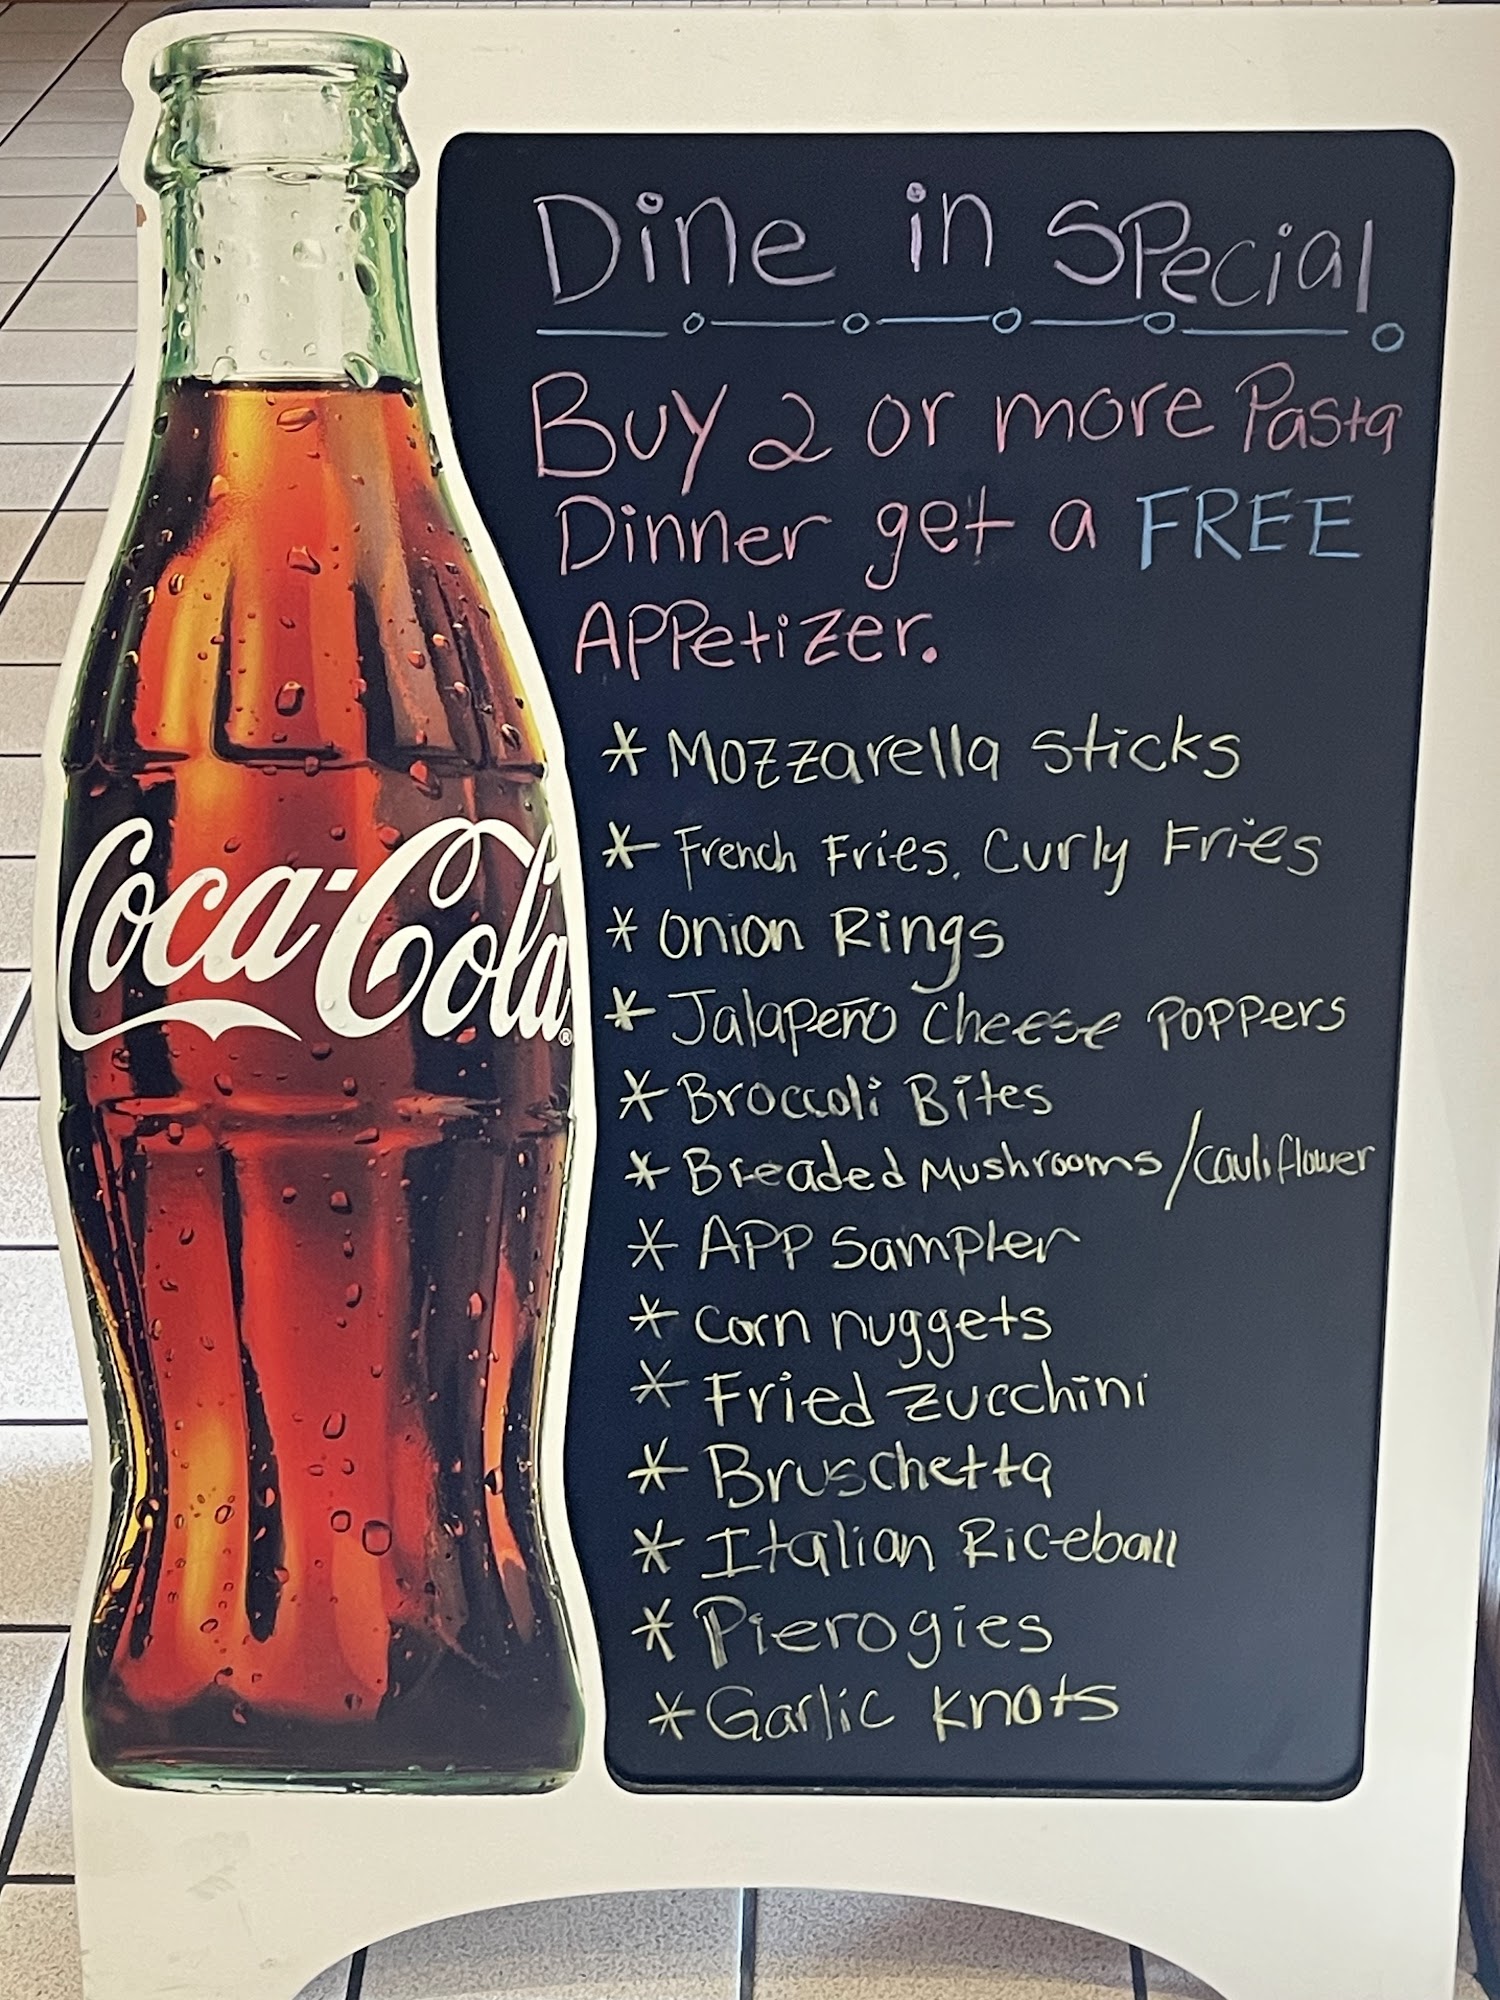 Dine in Special
Buy 2 or more Pasta
Dinner get a FREE
Appetizer.
* Mozzarella sticks
* French Fries, Curly Fries
* Onion Rings
* Jalapeño Cheese Poppers
Coca-Cola®
* Broccoli Bites
* Breaded Mushrooms/cauliflower
* APP Sampler
* corn nuggets
* Fried zucchini
* Bruschetta
* Italian Riceball
* Pierogies
* Garlic knots